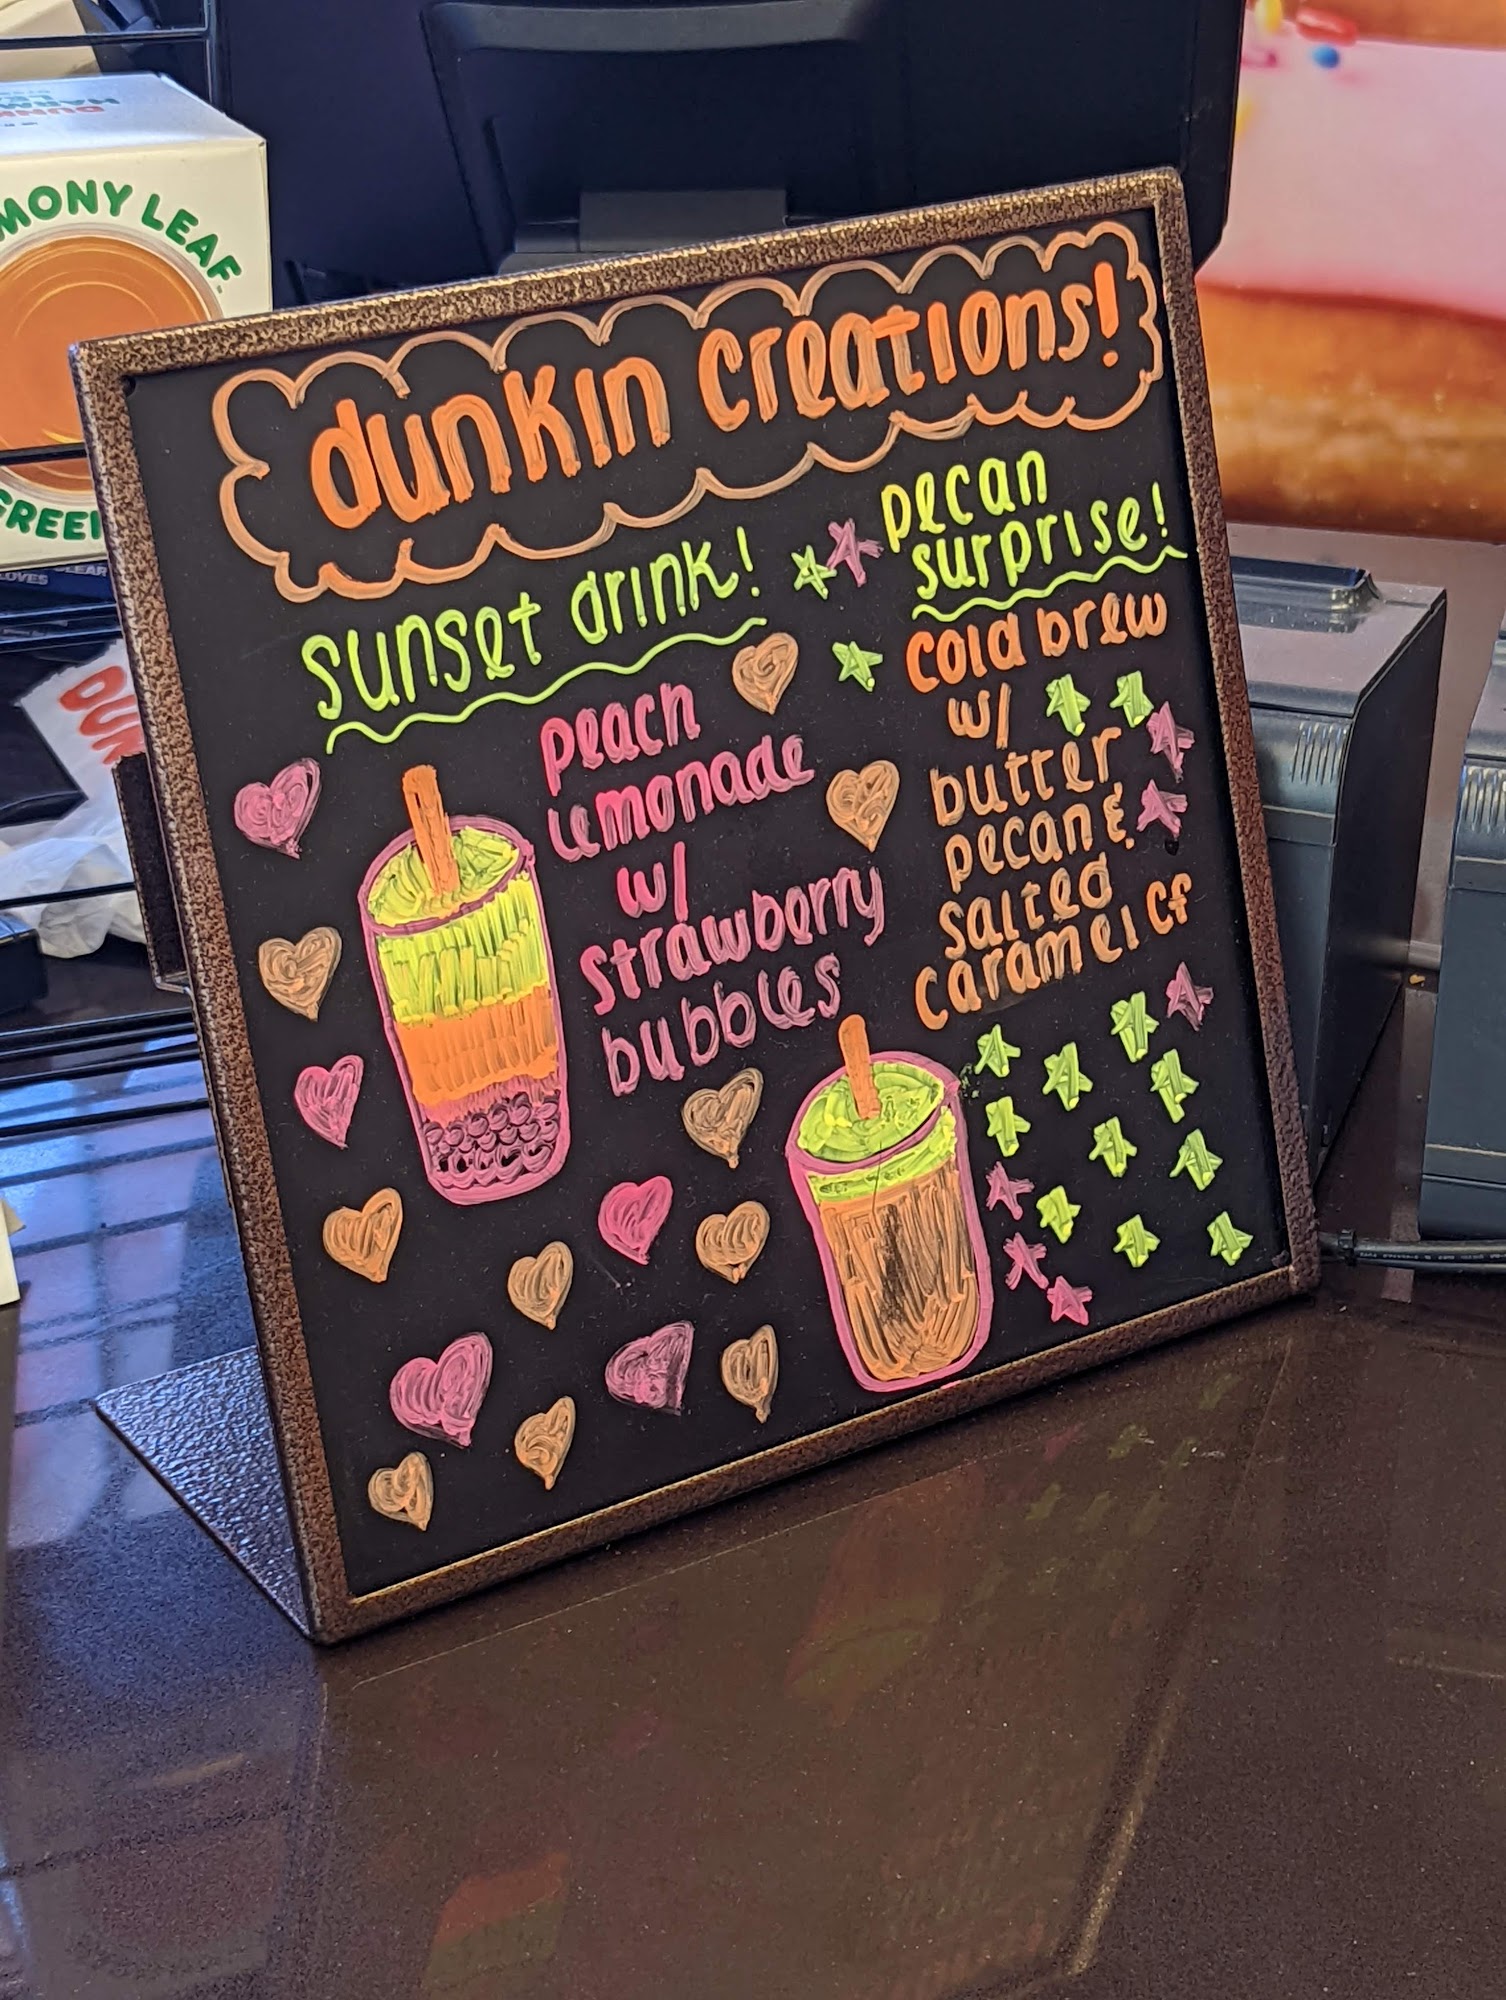 MONY LEAF
GREEN
CLEAR
LOVES
DUN
dunkin creations!
sunset drink!
peach
lemonade
w/
strawberry
bubbles
pecan
surprise!
cold brew
w/
butter
pecan &
salted
caramel cf